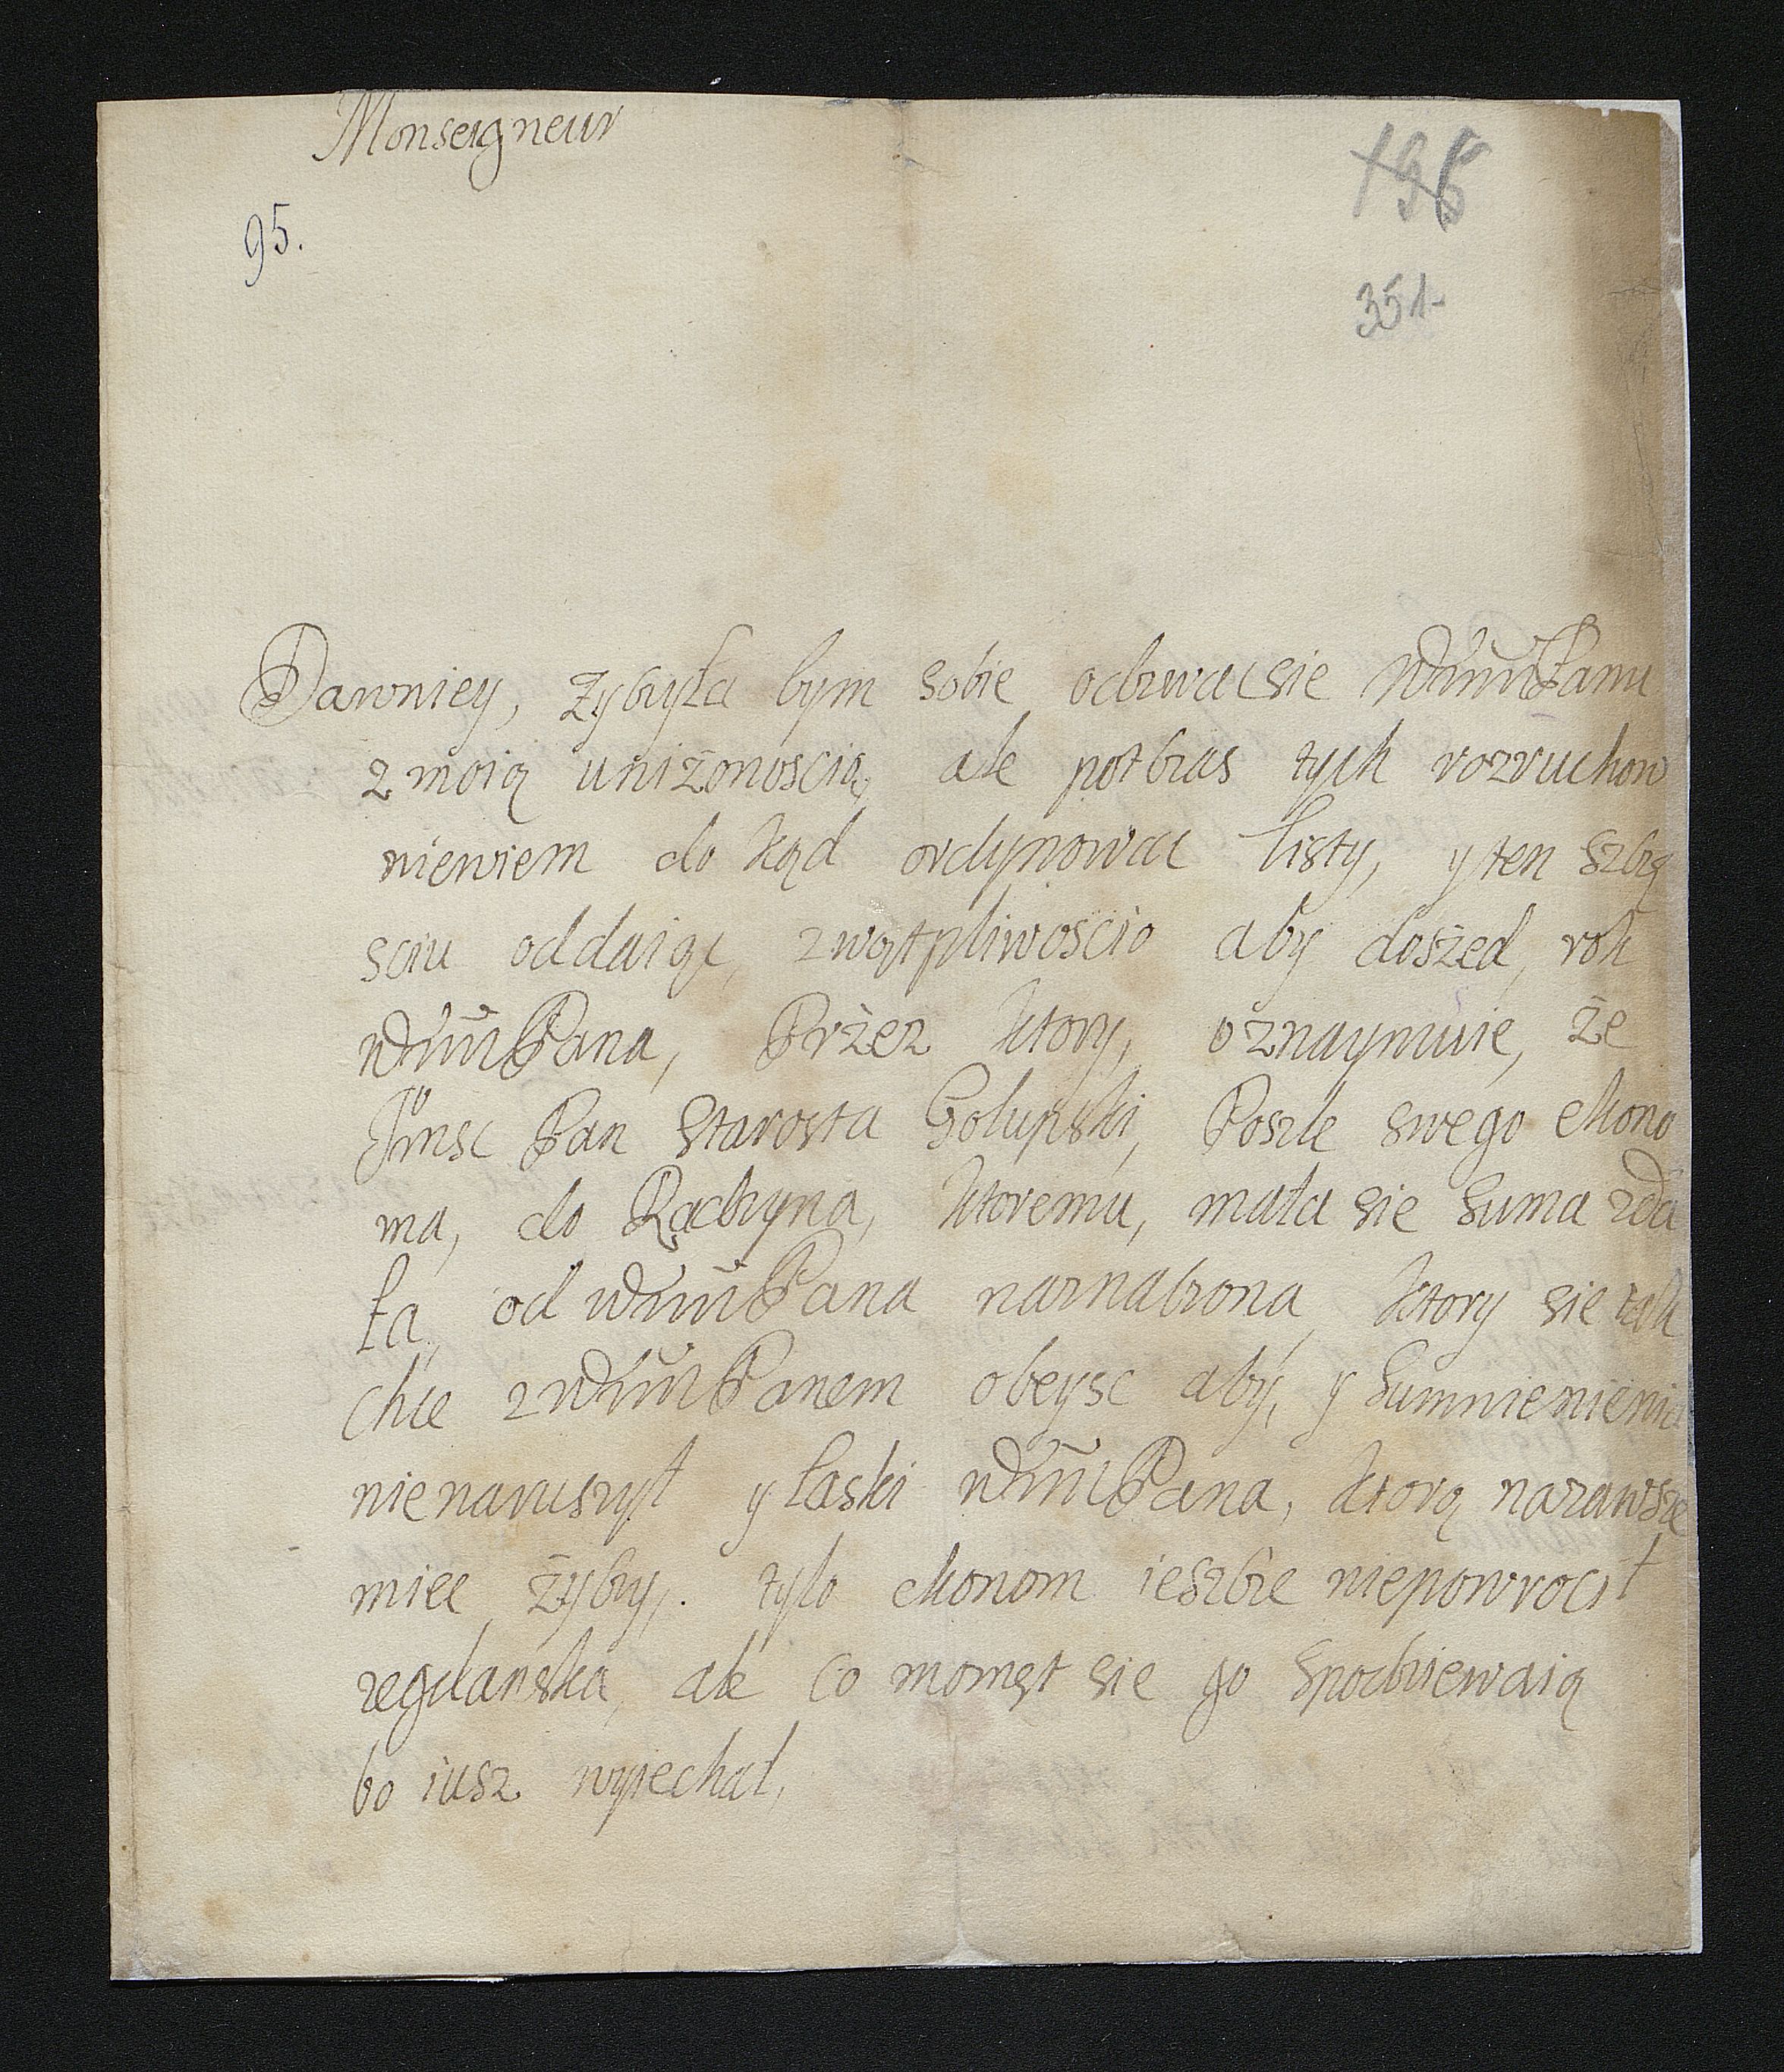 Monseigneur
95.
196
351
Dawniey, zyczyła bym sobie odzwac sie WMMPanu
z moią unizonoscią, ale potczas tych rozruchow
niewiem do kąd ordynowac listy, y ten szczę
sciu oddaiąc, z wątpliwoscio aby doszed, rok
WMMPana, Przez ktory, oznaymuie, że
Jmsc Pan Starosta Golupski, Poszle swego ekono
ma, do Raczyna, ktoremu, mała sie suma zda
ła, od WMMPana naznaczona, ktory sie tak
chce z WMMPanem obeysc aby, y Sumnienienia
nienaruszył y łaski WMMPana, ktorą nazawsze
miec życzy,. tylo ekonom ieszcze niepowrocił
zegdanska, ale co momęt sie go spodziewaią
bo iusz wyiechał,